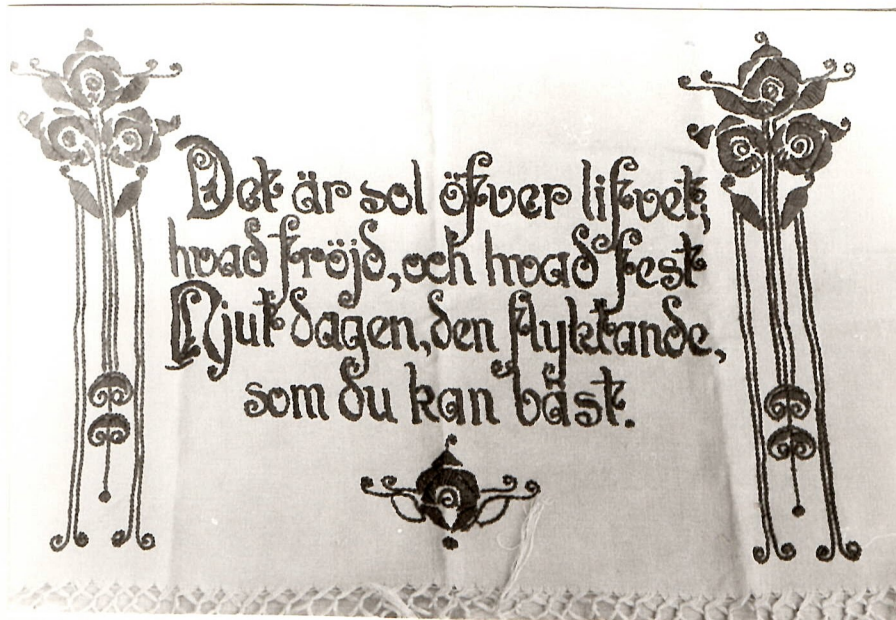 Det är sol öfver lifvet;
hvad fröjd, och hvad fest
Njut dagen, den flyktande,
som du kan bäst.